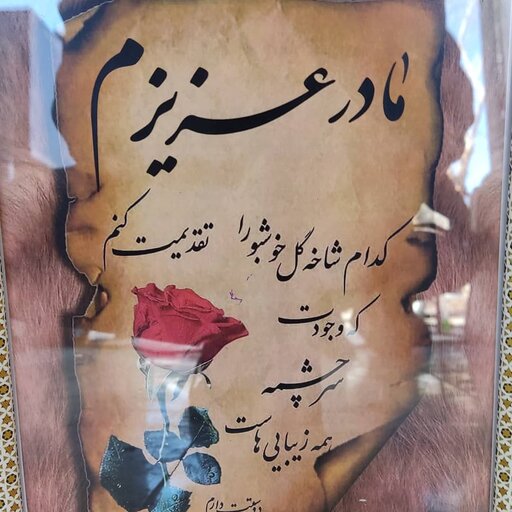 مادر عزیزم
کدام شاخه گل خوشبو را تقدیمت کنم
که وجودت
سرچشمه
همه زیبایی هاست
دوستت دارم